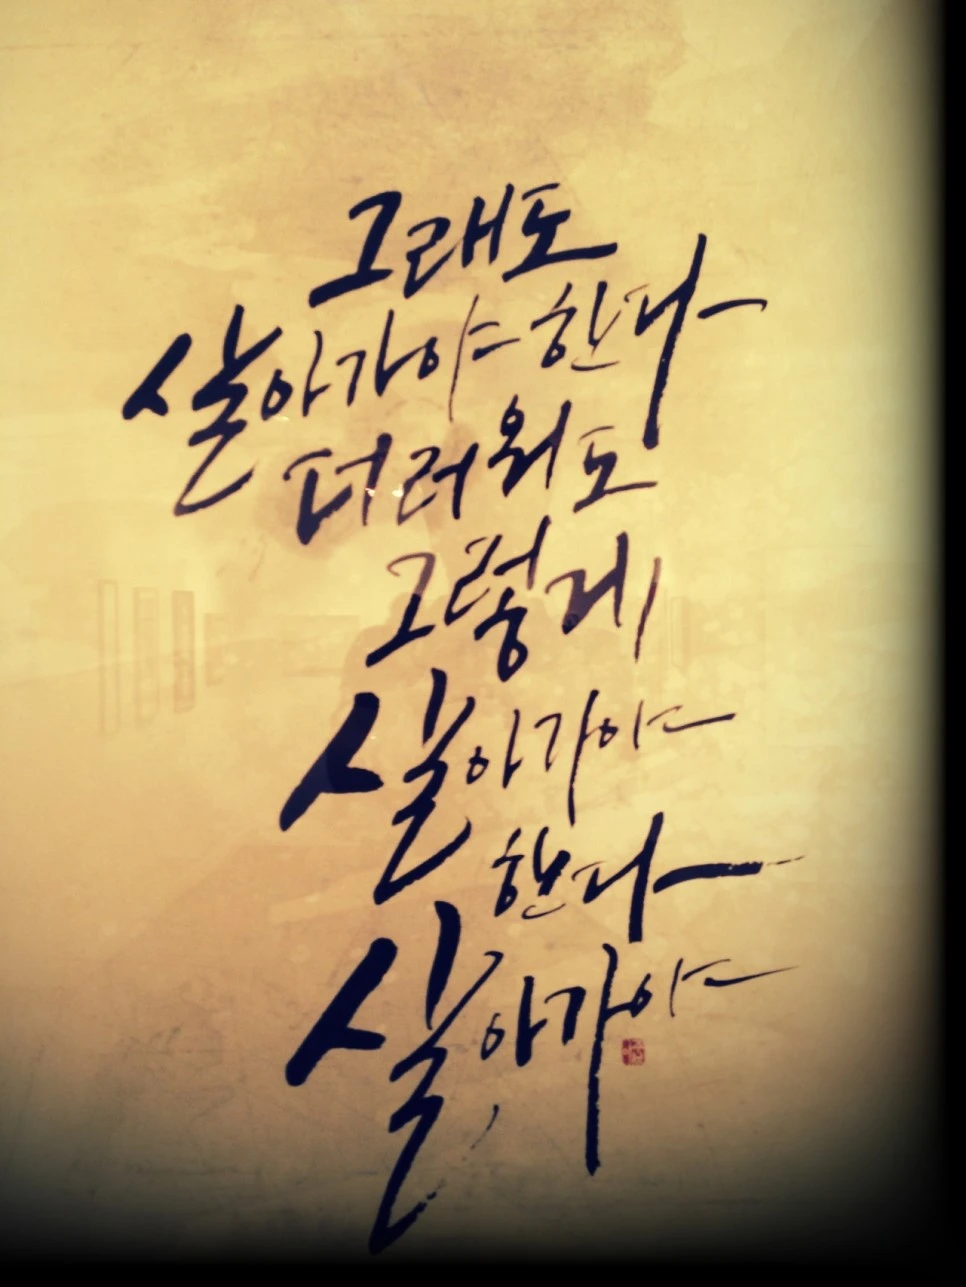 그래도
살아가야 한다
더러워도
그렇게
살아가야
한다
살아가야